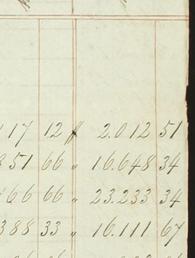 117 12 " 2.012 51
851 66 " 16.648 34
466 66 " 23.233 34
388 33 " 16.111 67